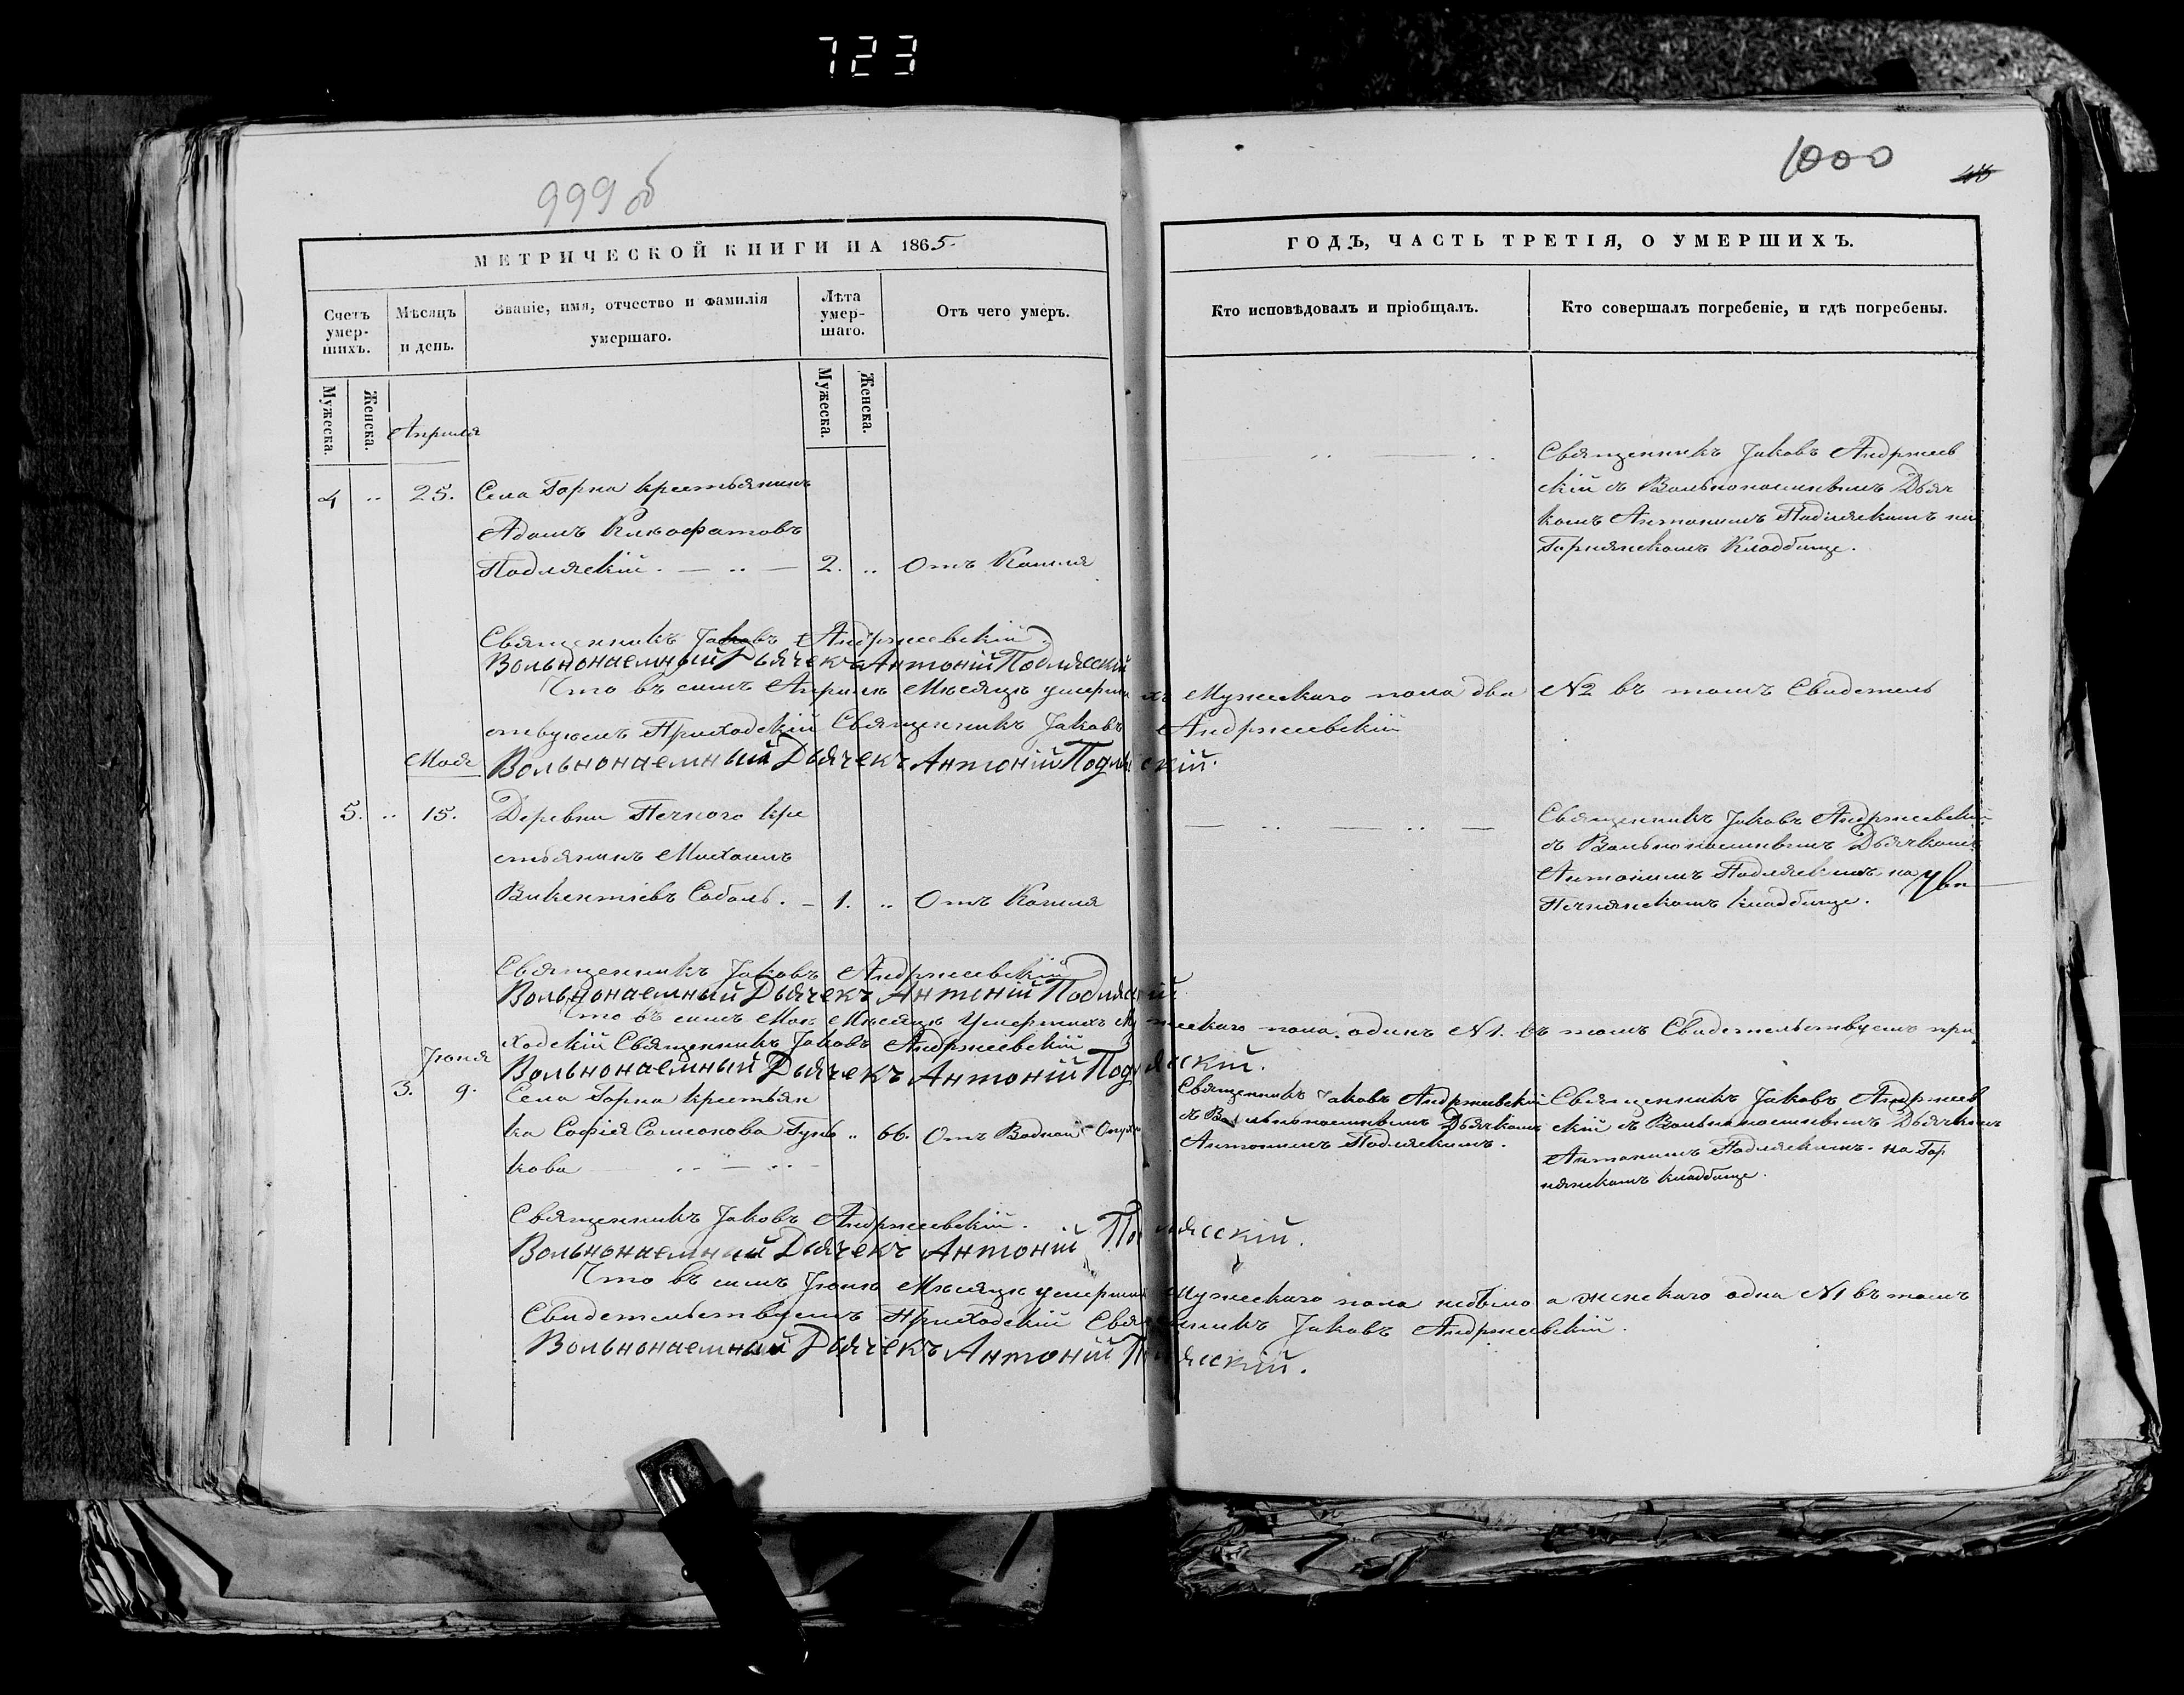 723
999 об
1000
МЕТРИЧЕСКОЙ КНИГИ НА 1865
ГОДЪ, ЧАСТЬ ТРЕТІЯ, О УМЕРШИХЪ.
Счетъ умер-шихъ.
Мѣсяцъ и день.
Званіе, имя, отчество и фамилія умершаго.
Лѣта умер-шаго.
Отъ чего умеръ.
Кто исповѣдовалъ и пріобщалъ.
Кто совершалъ погребеніе, и гдѣ погребены.
Мужеска.
Женска.
Мужеска.
Женска.
Апрѣля
4 .. 25. Села Горна крестьянинъ
Адамъ
Подляскій. — .. — 2. .. Отъ Кашля
.. — ..
Священникъ Іаковъ Андржеев
скій съ Вольнонаемнымъ Дьяч
комъ Антоніемъ Подляскимъ на
Горнянскомъ Кладбище.
Священникъ Іаковъ Андржеевскій.
Вольнонаемный Дьячекъ Антоній Подлясскій
Что въ семъ Апрѣлѣ Мѣсяцѣ умершихъ Мужескаго пола два №2 въ томъ Свидетель
ствуемъ Приходскій Священникъ Іаковъ Андржеевскій
Вольнонаемный Дьячекъ Антоній Подляскій.
Мая
5. .. 15. Деревни Печного кре
стьянинъ Михаилъ
Викентіевъ Соболь. – 1. .. Отъ Кашля
— .. — .. —
Священникъ Іаковъ Андржеевскій
съ Вольнонаемнымъ Дьячкомъ
Антоніемъ Подляскимъ на
Печнянскомъ кладбище.
Священникъ Іаковъ Андржеевскій
Вольнонаемный Дьячекъ Антоній Подлясскій
Что въ семъ Маѣ Мѣсяцѣ Умершихъ Мужескаго пола одинъ №1. въ томъ Свидетельствуемъ при
ходскій Священникъ Іаковъ Андржеевскій
Вольнонаемный Дьячекъ Антоній Подлясскій.
Іюня
3. 9. Села Горна крестьян
ка Софія Самсонова Гунь .. 66. Отъ Водной Опух
кова — .. — ..
Священникъ Іаковъ Андржеевскій
съ Вольнонаемнымъ Дьячкомъ
Антоніемъ Подляскимъ.
Священникъ Іаковъ Андржеев
скій съ Вольнонаемнымъ Дьячкомъ
Антоніемъ Подляскимъ. на Гор
нянскомъ кладбище.
Священникъ Іаковъ Андржеевскій.
Вольнонаемный Дьячекъ Антоній Подлясскій.
Что въ семъ Іюнѣ Мѣсяцѣ умерших Мужескаго пола небыло а женскаго одна №1 въ томъ
Свидетельствуемъ Приходскій Священникъ Іаковъ Андржеевскій.
Вольнонаемный Дьячекъ Антоній Подлясскій.